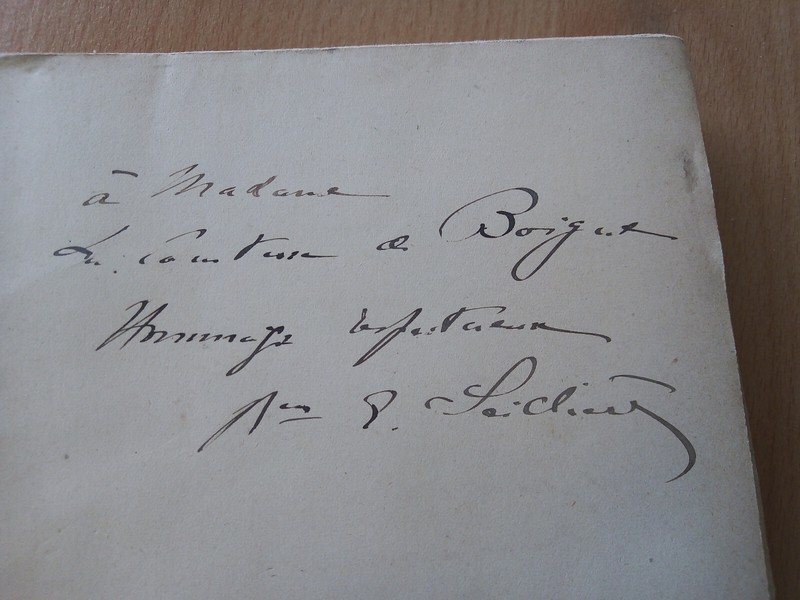 à Madame
La Comtesse de Boigne
Hommage respectueux
Bon E. Seillière